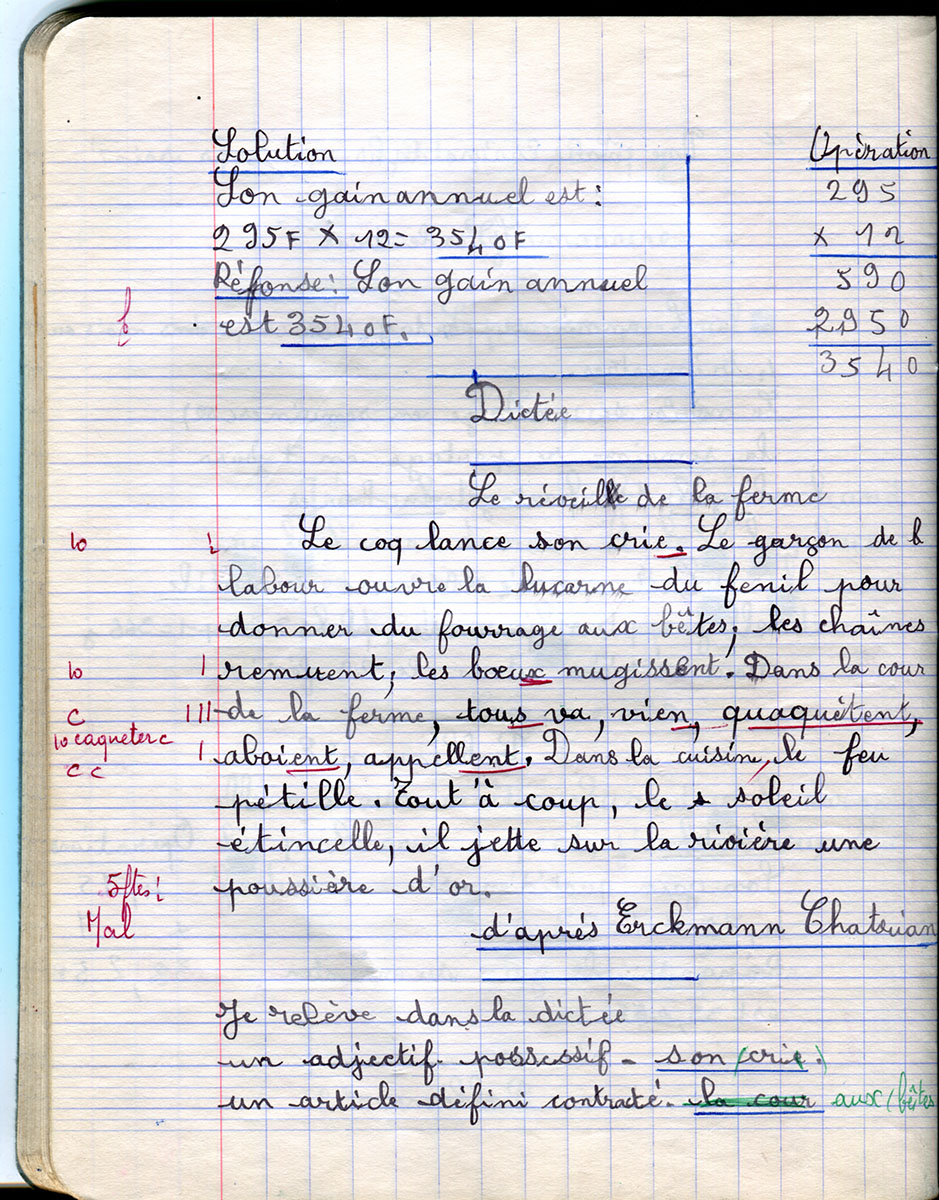 Solution
Opèration
Son gain annuel est:
295
295F X 12= 3540F
x 12
Réfonse: Son gain annuel
590
est 3540F.
2950
3540
Dictée
Le réveil de la ferme
10 Le coq lance son crie. Le garçon de
labour ouvre la lucarne du fenil pour
donner du fourrage aux bêtes; les chaînes
10 remuent; les boeux mugissent. Dans la cour
C de la ferme, tous va, vien, quaquètent,
10 caqueter c
aboient, appellent. Dans la cuisin, le feu
c c
pétille. Tout à coup, le soleil
étincelle, il jette sur la rivière une
5ftes! poussière d'or.
Mal
d'aprés Erckmann Chatrian
Je relève dans la dictée
un adjectif possessif - son (crie.)
un article défini contracté - la cour aux (bêtes